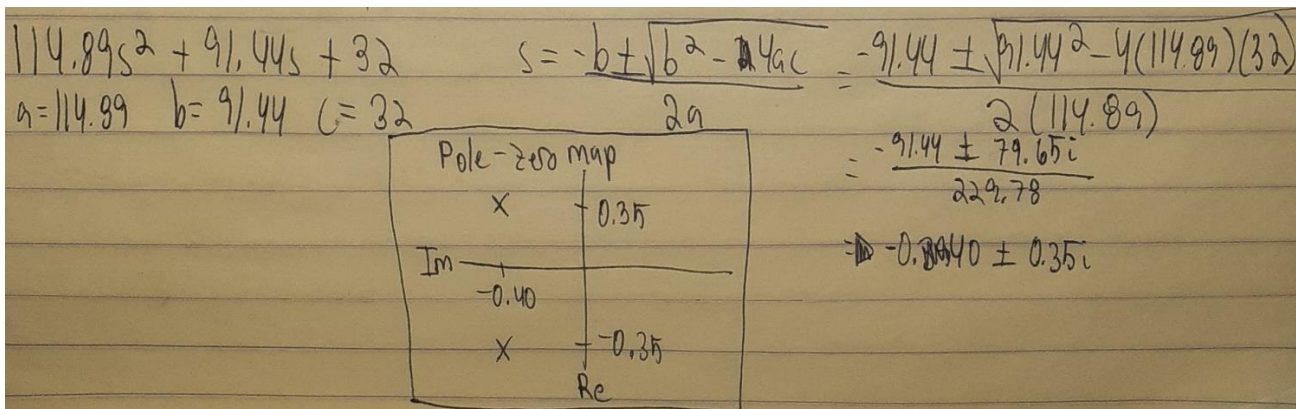 114.89s² + 91.44s + 32
a=114.89 b= 91.44 c= 32
s= -b±√(b² - 4ac) / 2a = -91.44 ± √(91.44² - 4(114.89)(32)) / 2(114.89)
= -91.44 ± 79.65i / 229.78
⇒ -0.40 ± 0.35i
Pole-zero map
x 0.35
Im
-0.40
x -0.35
Re